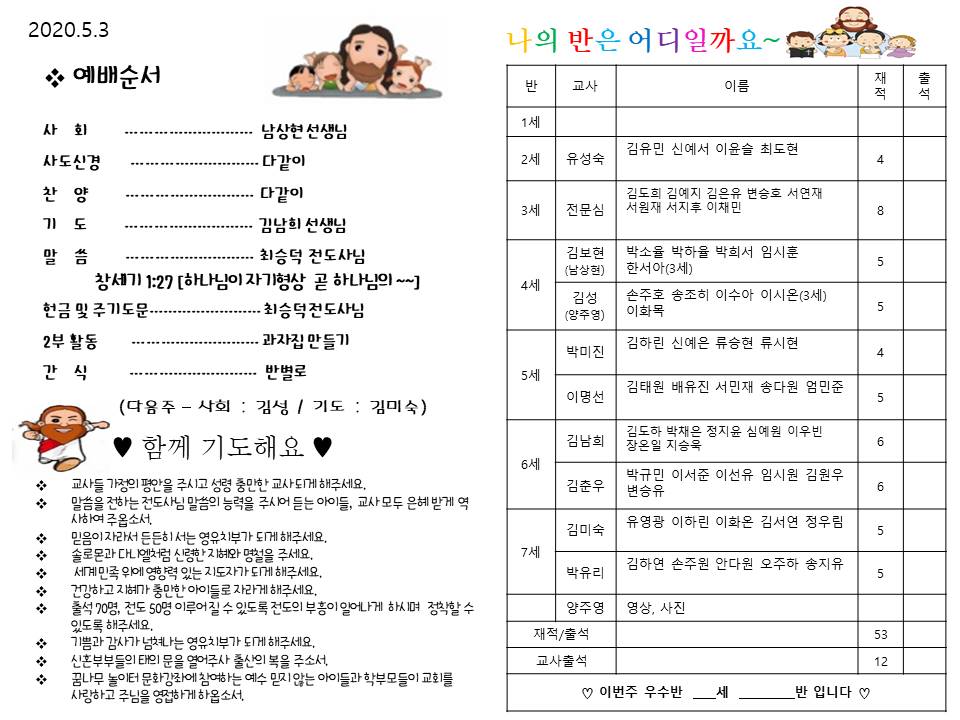 2020.5.3
❖ 예배순서
사 회 --------------------------- 남상현 선생님
사도신경 --------------------------- 다같이
찬 양 --------------------------- 다같이
기 도 --------------------------- 김남희 선생님
말 씀 --------------------------- 최승덕 전도사님
창세기 1:27 [하나님이 자기형상 곧 하나님의 ~~]
헌금 및 주기도문------------------------ 최승덕전도사님
2부 활동 --------------------------- 과자집 만들기
간 식 --------------------------- 반별로
(다음주 – 사회 : 김성 / 기도 : 김미숙)
♥ 함께 기도해요 ♥
❖ 교사들 가정의 평안을 주시고 성령 충만한 교사 되게 해주세요.
❖ 말씀을 전하는 전도사님 말씀의 능력을 주시어 듣는 아이들, 교사 모두 은혜 받게 역
사하여 주옵소서.
❖ 믿음이 자라서 든든히 서는 영유치부가 되게 해주세요.
❖ 솔로몬과 다니엘처럼 신령한 지혜와 명철을 주세요.
❖ 세계 민족 위에 영향력 있는 지도자가 되게 해주세요.
❖ 건강하고 지혜가 충만한 아이들로 자라게 해주세요.
❖ 출석 70명, 전도 50명 이루어 질 수 있도록 전도의 부흥이 일어나게 하시며 정착할 수
있도록 해주세요.
❖ 기쁨과 감사가 넘쳐나는 영유치부가 되게 해주세요.
❖ 신혼부부들의 태의 문을 열어주사 출산의 복을 주소서.
❖ 꿈나무 놀이터 문화강좌에 참여하는 예수 믿지 않는 아이들과 학부모들이 교회를
사랑하고 주님을 영접하게 하옵소서.
나의 반은 어디일까요~
반 교사 이름 재적 출석
1세
2세 유성숙 김유민 신예서 이윤슬 최도현 4
3세 전문심 김도희 김예지 김은유 변승호 서연재
서원재 서지후 이채민 8
4세 김보현 (남상현) 박소율 박하율 박희서 임시훈
한서아(3세) 5
김성 (양주영) 손주호 송조히 이수아 이시온(3세)
이화목 5
5세 박미진 김하린 신예은 류승현 류시현 4
이명선 김태원 배유진 서민재 송다원 엄민준 5
6세 김남희 김도하 박채은 정지윤 심예원 이우빈
장온일 지승욱 6
김춘우 박규민 이서준 이선유 임시원 김원우
변승유 6
7세 김미숙 유영광 이하린 이화온 김서연 정우림 5
박유리 김하연 손주원 안다원 오주하 송지유 5
양주영 영상, 사진
재적/출석 53
교사출석 12
♡ 이번주 우수반 ___세 ________반 입니다 ♡